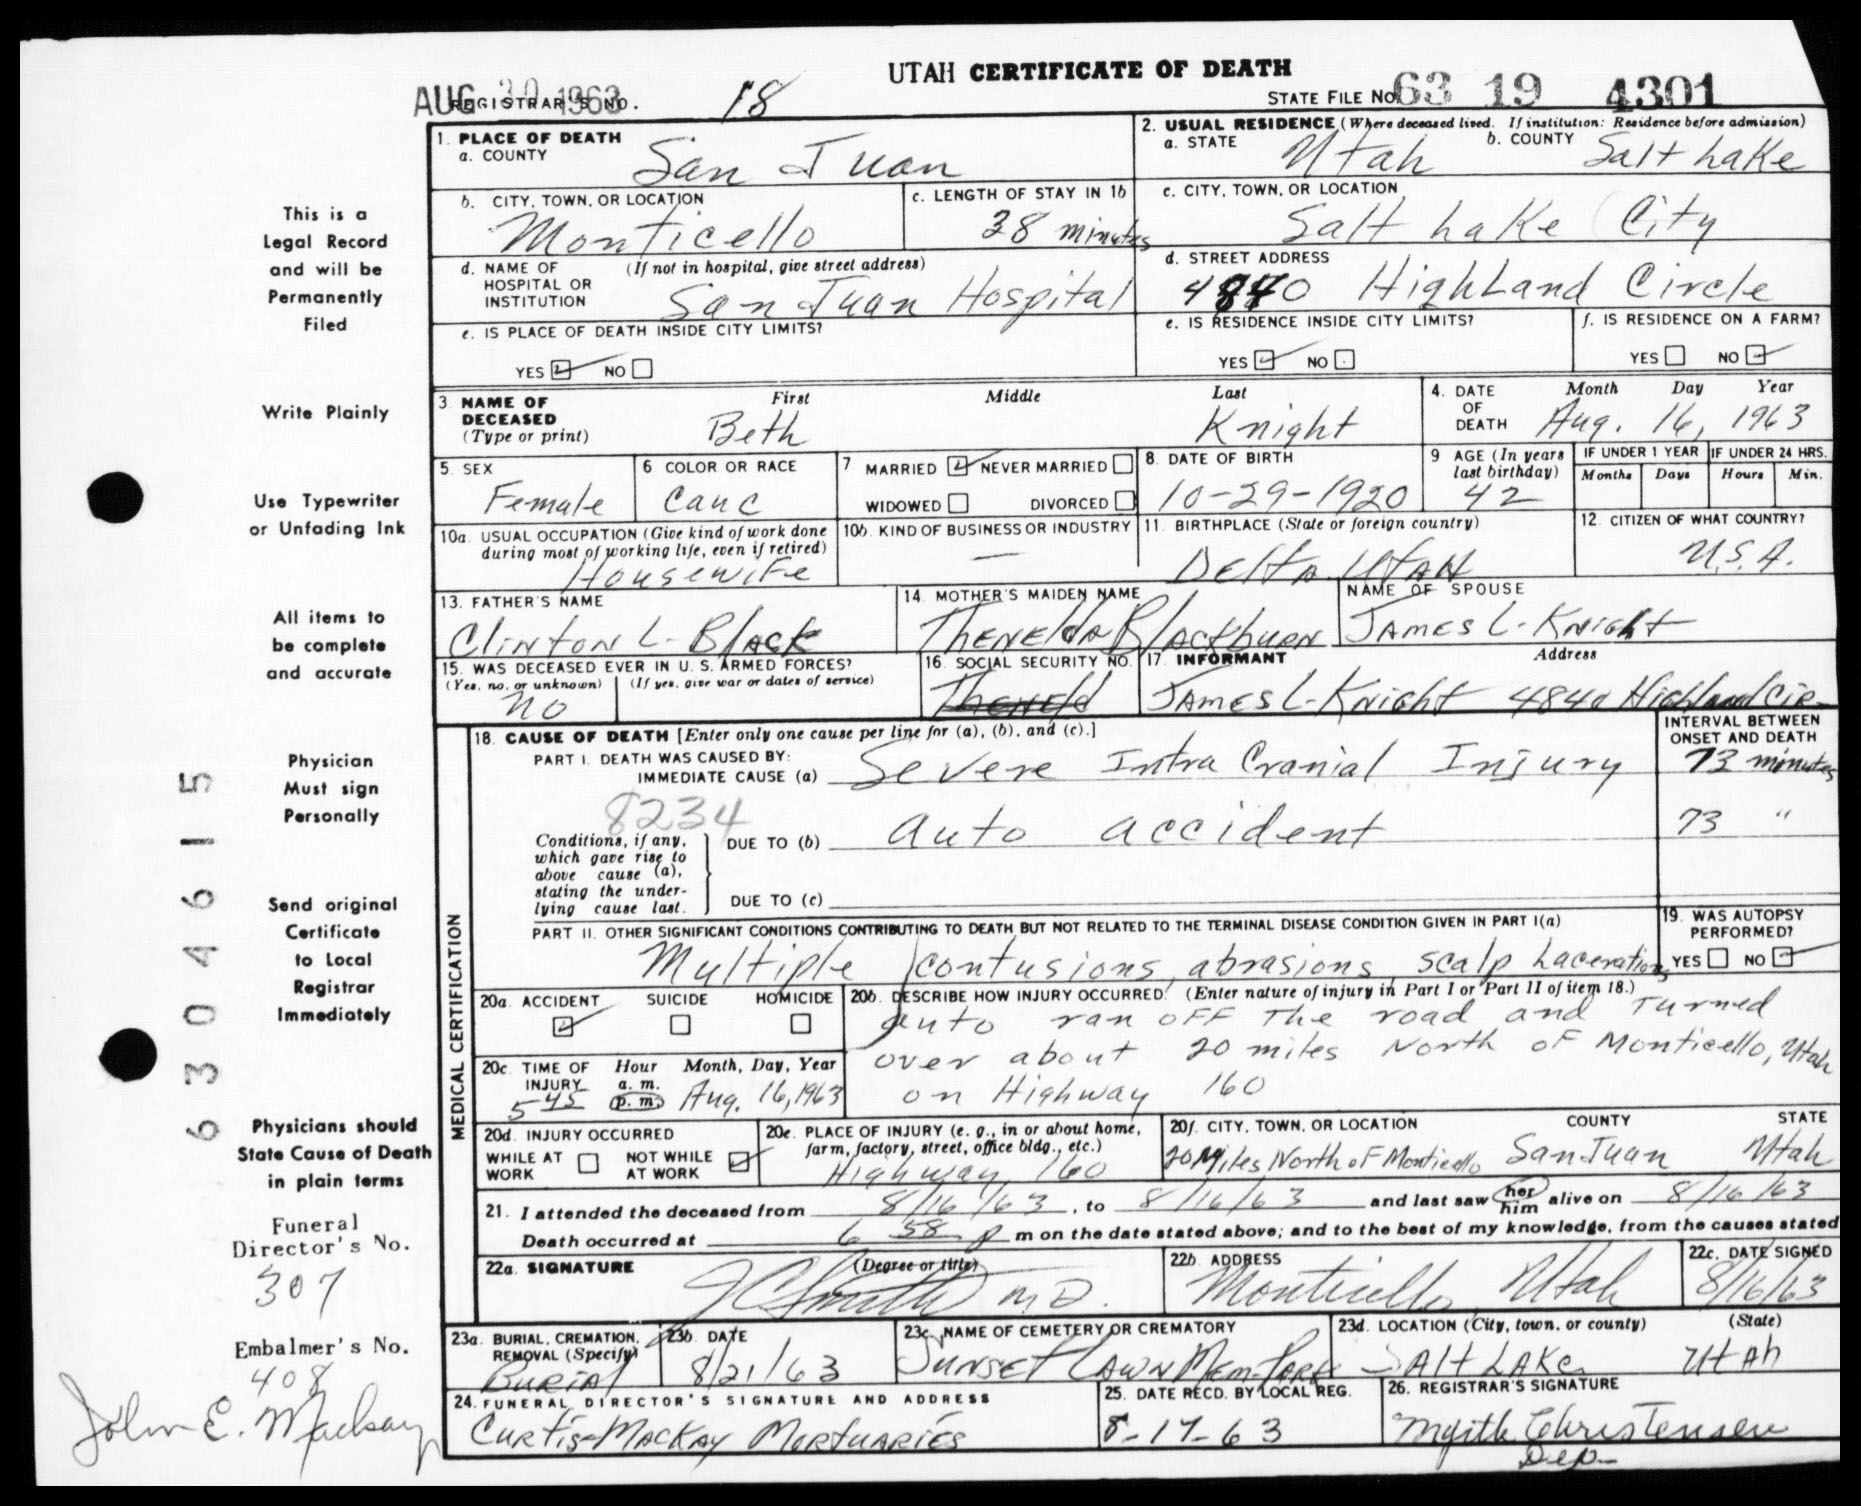 UTAH CERTIFICATE OF DEATH
AUG 30 1963
REGISTRAR'S NO. 18
STATE FILE NO. 63 19 4301
1. PLACE OF DEATH
a. COUNTY San Juan
2. USUAL RESIDENCE (Where deceased lived. If institution: Residence before admission)
a. STATE Utah b. COUNTY Salt Lake
b. CITY, TOWN, OR LOCATION Monticello
c. LENGTH OF STAY IN 1b 38 minutes
c. CITY, TOWN, OR LOCATION Salt Lake City
d. NAME OF HOSPITAL OR INSTITUTION (If not in hospital, give street address) San Juan Hospital
d. STREET ADDRESS 4840 Highland Circle
e. IS PLACE OF DEATH INSIDE CITY LIMITS?
YES NO
e. IS RESIDENCE INSIDE CITY LIMITS?
YES NO
f. IS RESIDENCE ON A FARM?
YES NO
3. NAME OF DECEASED (Type or print)
First Middle Last
Beth Knight
4. DATE OF DEATH Month Day Year
Aug. 16, 1963
5. SEX Female
6 COLOR OR RACE Cauc
7 MARRIED NEVER MARRIED
WIDOWED DIVORCED
8. DATE OF BIRTH 10-29-1920
9 AGE (In years last birthday) 42
IF UNDER 1 YEAR Months Days
IF UNDER 24 HRS. Hours Min.
10a. USUAL OCCUPATION (Give kind of work done during most of working life, even if retired) Housewife
10b. KIND OF BUSINESS OR INDUSTRY —
11. BIRTHPLACE (State or foreign country) Delta Utah
12. CITIZEN OF WHAT COUNTRY? U.S.A.
13. FATHER'S NAME Clinton L. Black
14. MOTHER'S MAIDEN NAME Thenelda Blackburn
NAME OF SPOUSE James L. Knight
15. WAS DECEASED EVER IN U. S. ARMED FORCES?
(Yes, no, or unknown) (If yes, give war or dates of service)
no
16. SOCIAL SECURITY NO. Theneld
17. INFORMANT Address
James L. Knight 4840 Highland Cir.
MEDICAL CERTIFICATION
18. CAUSE OF DEATH [Enter only one cause per line for (a), (b), and (c).]
INTERVAL BETWEEN ONSET AND DEATH
PART I. DEATH WAS CAUSED BY:
IMMEDIATE CAUSE (a) Severe Intra Cranial Injury 73 minutes
8234
Conditions, if any, which gave rise to above cause (a), stating the underlying cause last.
DUE TO (b) auto accident 73 "
DUE TO (c)
PART II. OTHER SIGNIFICANT CONDITIONS CONTRIBUTING TO DEATH BUT NOT RELATED TO THE TERMINAL DISEASE CONDITION GIVEN IN PART I(a)
Multiple contusions, abrasions, scalp Lacerations
19. WAS AUTOPSY PERFORMED?
YES NO
20a. ACCIDENT SUICIDE HOMICIDE
20b. DESCRIBE HOW INJURY OCCURRED. (Enter nature of injury in Part I or Part II of item 18.)
Auto ran off the road and turned
over about 20 miles North of Monticello, Utah
on Highway 160
20c. TIME OF INJURY Hour Month, Day, Year
5 45 a. m. p. m. Aug. 16, 1963
20d. INJURY OCCURRED
WHILE AT WORK NOT WHILE AT WORK
20e. PLACE OF INJURY (e. g., in or about home, farm, factory, street, office bldg., etc.)
Highway 160
20f. CITY, TOWN, OR LOCATION COUNTY STATE
20 Miles North of Monticello San Juan Utah
21. I attended the deceased from 8/16/63, to 8/16/63 and last saw her him alive on 8/16/63
Death occurred at 6 58 p m on the date stated above; and to the best of my knowledge, from the causes stated
22a. SIGNATURE (Degree or title)
J C Smith M D.
22b. ADDRESS Monticello, Utah
22c. DATE SIGNED 8/16/63
23a. BURIAL, CREMATION, REMOVAL (Specify) Burial
23b. DATE 8/21/63
23c. NAME OF CEMETERY OR CREMATORY Sunset Lawn Mem. Park
23d. LOCATION (City, town, or county) (State)
Salt Lake Utah
24. FUNERAL DIRECTOR'S SIGNATURE AND ADDRESS
Curtis-Mackay Mortuaries
25. DATE RECD. BY LOCAL REG. 8-17-63
26. REGISTRAR'S SIGNATURE
Christensen
Dep.
This is a
Legal Record
and will be
Permanently
Filed
Write Plainly
Use Typewriter
or Unfading Ink
All items to
be complete
and accurate
Physician
Must sign
Personally
Send original
Certificate
to Local
Registrar
Immediately
Physicians should
State Cause of Death
in plain terms
Funeral
Director's No.
307
Embalmer's No.
408
John E. Mackay
6304615